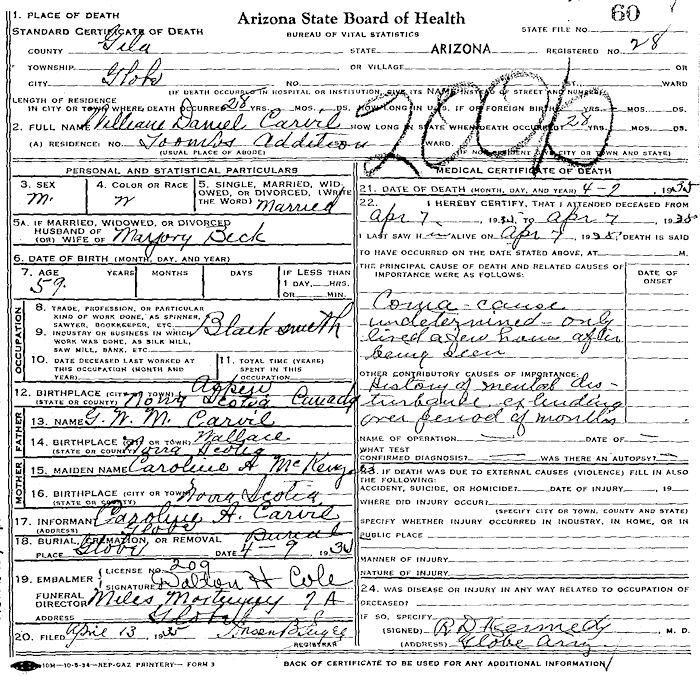 1. PLACE OF DEATH
Arizona State Board of Health
60
STANDARD CERTIFICATE OF DEATH
BUREAU OF VITAL STATISTICS
STATE FILE NO.
COUNTY Gila
STATE ARIZONA
REGISTERED NO. 28
TOWNSHIP
OR VILLAGE
CITY Globe NO. ST. WARD
(IF DEATH OCCURRED IN HOSPITAL OR INSTITUTION, GIVE ITS NAME INSTEAD OF STREET AND NUMBER)
LENGTH OF RESIDENCE
IN CITY OR TOWN WHERE DEATH OCCURRED 28 YRS. MOS. DS. HOW LONG IN U.S. IF OF FOREIGN BIRTH YRS. MOS. DS.
2. FULL NAME William Daniel Carvil HOW LONG IN STATE WHEN DEATH OCCURRED 28 YRS. MOS. DS.
(A) RESIDENCE: NO. Toombs Addition WARD.
(USUAL PLACE OF ABODE) (IF NON-RESIDENT GIVE CITY OR TOWN AND STATE)
200b
PERSONAL AND STATISTICAL PARTICULARS
3. SEX M.
4. COLOR OR RACE W
5. SINGLE, MARRIED, WIDOWED, OR DIVORCED, (WRITE THE WORD) Married
5A. IF MARRIED, WIDOWED, OR DIVORCED
HUSBAND OF
(OR) WIFE OF Marjory Beck
6. DATE OF BIRTH (MONTH, DAY, AND YEAR)
7. AGE YEARS MONTHS DAYS IF LESS THAN
59 1 DAY, HRS.
OR MIN.
OCCUPATION
8. TRADE, PROFESSION, OR PARTICULAR
KIND OF WORK DONE, AS SPINNER,
SAWYER, BOOKKEEPER, ETC. Blacksmith
9. INDUSTRY OR BUSINESS IN WHICH
WORK WAS DONE, AS SILK MILL,
SAW MILL, BANK, ETC.
10. DATE DECEASED LAST WORKED AT
THIS OCCUPATION (MONTH AND
YEAR)
11. TOTAL TIME (YEARS)
SPENT IN THIS
OCCUPATION
12. BIRTHPLACE (CITY OR TOWN)
(STATE OR COUNTY) Nova Scotia Canada
FATHER
13. NAME G. W. M. Carvil
14. BIRTHPLACE (CITY OR TOWN) Wallace
(STATE OR COUNTY) Nova Scotia
MOTHER
15. MAIDEN NAME Caroline A McKenzie
16. BIRTHPLACE (CITY OR TOWN)
(STATE OR COUNTY) Nova Scotia
17. INFORMANT Caroline A. Carvil
(ADDRESS) Globe
18. BURIAL, CREMATION, OR REMOVAL Burial
PLACE Globe DATE 4-9 1935
19. EMBALMER LICENSE NO. 209
SIGNATURE Dalton H Cole
FUNERAL
DIRECTOR Miles Mortuary
ADDRESS Globe
20. FILED April 13 1935
REGISTRAR
MEDICAL CERTIFICATE OF DEATH
21. DATE OF DEATH (MONTH, DAY, AND YEAR) 4-7 1935
22. I HEREBY CERTIFY, THAT I ATTENDED DECEASED FROM
Apr 7, 1935, TO Apr 7 1935
I LAST SAW H im ALIVE ON Apr 7 1935, DEATH IS SAID
TO HAVE OCCURRED ON THE DATE STATED ABOVE, AT M.
THE PRINCIPAL CAUSE OF DEATH AND RELATED CAUSES OF
IMPORTANCE WERE AS FOLLOWS:
DATE OF
ONSET
Coma - cause
undetermined - only
lived a few hours after
being seen
OTHER CONTRIBUTORY CAUSES OF IMPORTANCE:
History of mental dis-
turbance extending
over period of months
NAME OF OPERATION DATE OF
WHAT TEST
CONFIRMED DIAGNOSIS? WAS THERE AN AUTOPSY?
23. IF DEATH WAS DUE TO EXTERNAL CAUSES (VIOLENCE) FILL IN ALSO
THE FOLLOWING:
ACCIDENT, SUICIDE, OR HOMICIDE? DATE OF INJURY, 19
WHERE DID INJURY OCCUR?
(SPECIFY CITY OR TOWN, COUNTY AND STATE)
SPECIFY WHETHER INJURY OCCURRED IN INDUSTRY, IN HOME, OR IN
PUBLIC PLACE
MANNER OF INJURY
NATURE OF INJURY
24. WAS DISEASE OR INJURY IN ANY WAY RELATED TO OCCUPATION OF
DECEASED?
IF SO, SPECIFY
(SIGNED) R D Kennedy, M. D.
(ADDRESS) Globe Ariz
10M-10-5-34-REP-GAZ PRINTERY-FORM 3
BACK OF CERTIFICATE TO BE USED FOR ANY ADDITIONAL INFORMATION